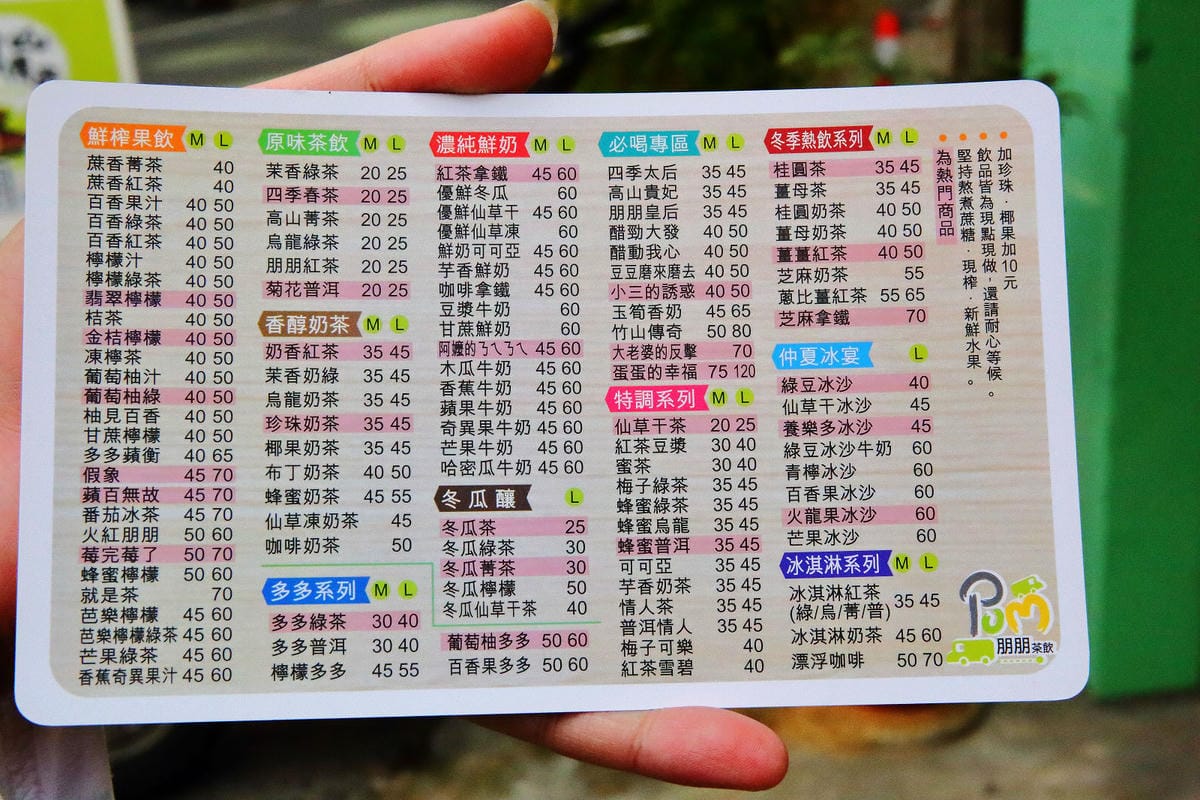 鮮榨果飲 M L
蔗香菁茶 40
蔗香紅茶 40
百香果汁 40 50
百香綠茶 40 50
百香紅茶 40 50
檸檬汁 40 50
檸檬綠茶 40 50
翡翠檸檬 40 50
桔茶 40 50
金桔檸檬 40 50
凍檸茶 40 50
葡萄柚汁 40 50
葡萄柚綠 40 50
柚見百香 40 50
甘蔗檸檬 40 50
多多蘋衡 40 65
假象 45 70
蘋百無故 45 70
番茄冰茶 45 70
火紅朋朋 50 60
莓完莓了 50 70
蜂蜜檸檬 50 60
就是茶 70
芭樂檸檬 45 60
芭樂檸檬綠茶 45 60
芒果綠茶 45 60
香蕉奇異果汁 45 60
原味茶飲 M L
茉香綠茶 20 25
四季春茶 20 25
高山菁茶 20 25
烏龍綠茶 20 25
朋朋紅茶 20 25
菊花普洱 20 25
香醇奶茶 M L
奶香紅茶 35 45
茉香奶綠 35 45
烏龍奶茶 35 45
珍珠奶茶 35 45
椰果奶茶 35 45
布丁奶茶 40 50
蜂蜜奶茶 45 55
仙草凍奶茶 45
咖啡奶茶 50
多多系列 M L
多多綠茶 30 40
多多普洱 30 40
檸檬多多 45 55
葡萄柚多多 50 60
百香果多多 50 60
濃純鮮奶 M L
紅茶拿鐵 45 60
優鮮冬瓜 60
優鮮仙草干 45 60
優鮮仙草凍 60
鮮奶可可亞 45 60
芋香鮮奶 45 60
咖啡拿鐵 45 60
豆漿牛奶 60
甘蔗鮮奶 60
阿嬤的ㄋㄟㄋㄟ 45 60
木瓜牛奶 45 60
香蕉牛奶 45 60
蘋果牛奶 45 60
奇異果牛奶 45 60
芒果牛奶 45 60
哈密瓜牛奶 45 60
冬瓜釀 L
冬瓜茶 25
冬瓜綠茶 30
冬瓜菁茶 30
冬瓜檸檬 50
冬瓜仙草干茶 40
必喝專區 M L
四季太后 35 45
高山貴妃 35 45
朋朋皇后 35 45
醋勁大發 40 50
醋動我心 40 50
豆豆磨來磨去 40 50
小三的誘惑 40 50
玉筍香奶 45 65
竹山傳奇 50 80
大老婆的反擊 70
蛋蛋的幸福 75 120
特調系列 M L
仙草干茶 20 25
紅茶豆漿 30 40
蜜茶 30 40
梅子綠茶 35 45
蜂蜜綠茶 35 45
蜂蜜烏龍 35 45
蜂蜜普洱 35 45
可可亞 35 45
芋香奶茶 35 45
情人茶 35 45
普洱情人 35 45
梅子可樂 40
紅茶雪碧 40
冬季熱飲系列 M L
桂圓茶 35 45
薑母茶 35 45
桂圓奶茶 40 50
薑母奶茶 40 50
薑薑紅茶 40 50
芝麻奶茶 55
蔥比薑紅茶 55 65
芝麻拿鐵 70
仲夏冰宴 L
綠豆冰沙 40
仙草干冰沙 45
養樂多冰沙 45
綠豆冰沙牛奶 60
青檸冰沙 60
百香果冰沙 60
火龍果冰沙 60
芒果冰沙 60
冰淇淋系列 M L
冰淇淋紅茶
(綠/烏/菁/普) 35 45
冰淇淋奶茶 45 60
漂浮咖啡 50 70
加珍珠.椰果加10元
飲品皆為現點現做，還請耐心等候。
堅持熬煮蔗糖．現榨．新鮮水果。
為熱門商品
PoM
朋朋茶飲